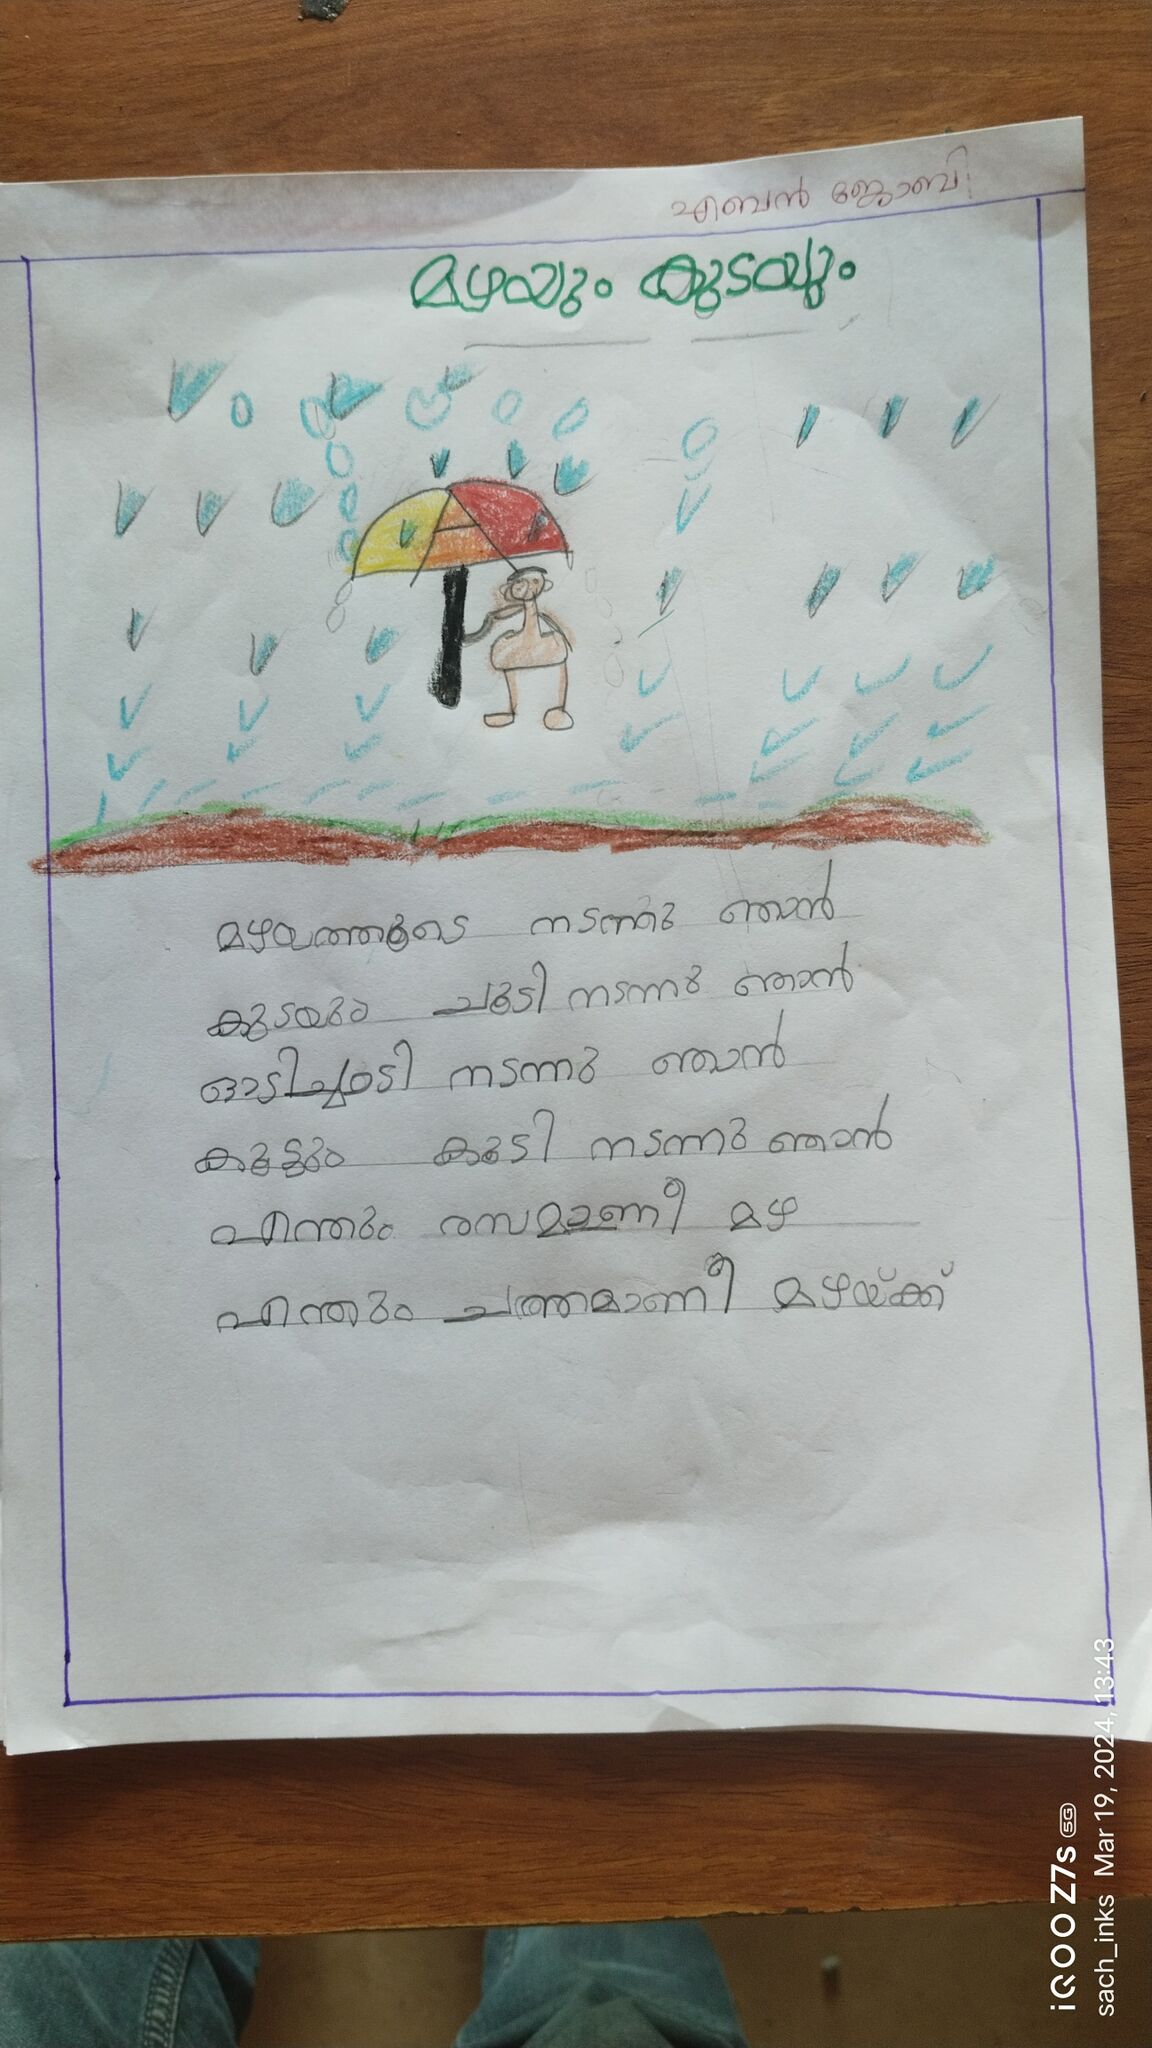 എബൻ ജോബി
മഴയും കുടയും
മഴയത്തൂടെ നടന്നു ഞാൻ
കുടയും ചൂടി നടന്നു ഞാൻ
ഓടിച്ചാടി നടന്നു ഞാൻ
കൂട്ടും കൂടി നടന്നു ഞാൻ
എന്തും രസമാണീ മഴ
എന്തും ചന്തമാണീ മഴയ്ക്ക്
iQOO Z7s 5G
sach_inks Mar 19, 2024, 13:43